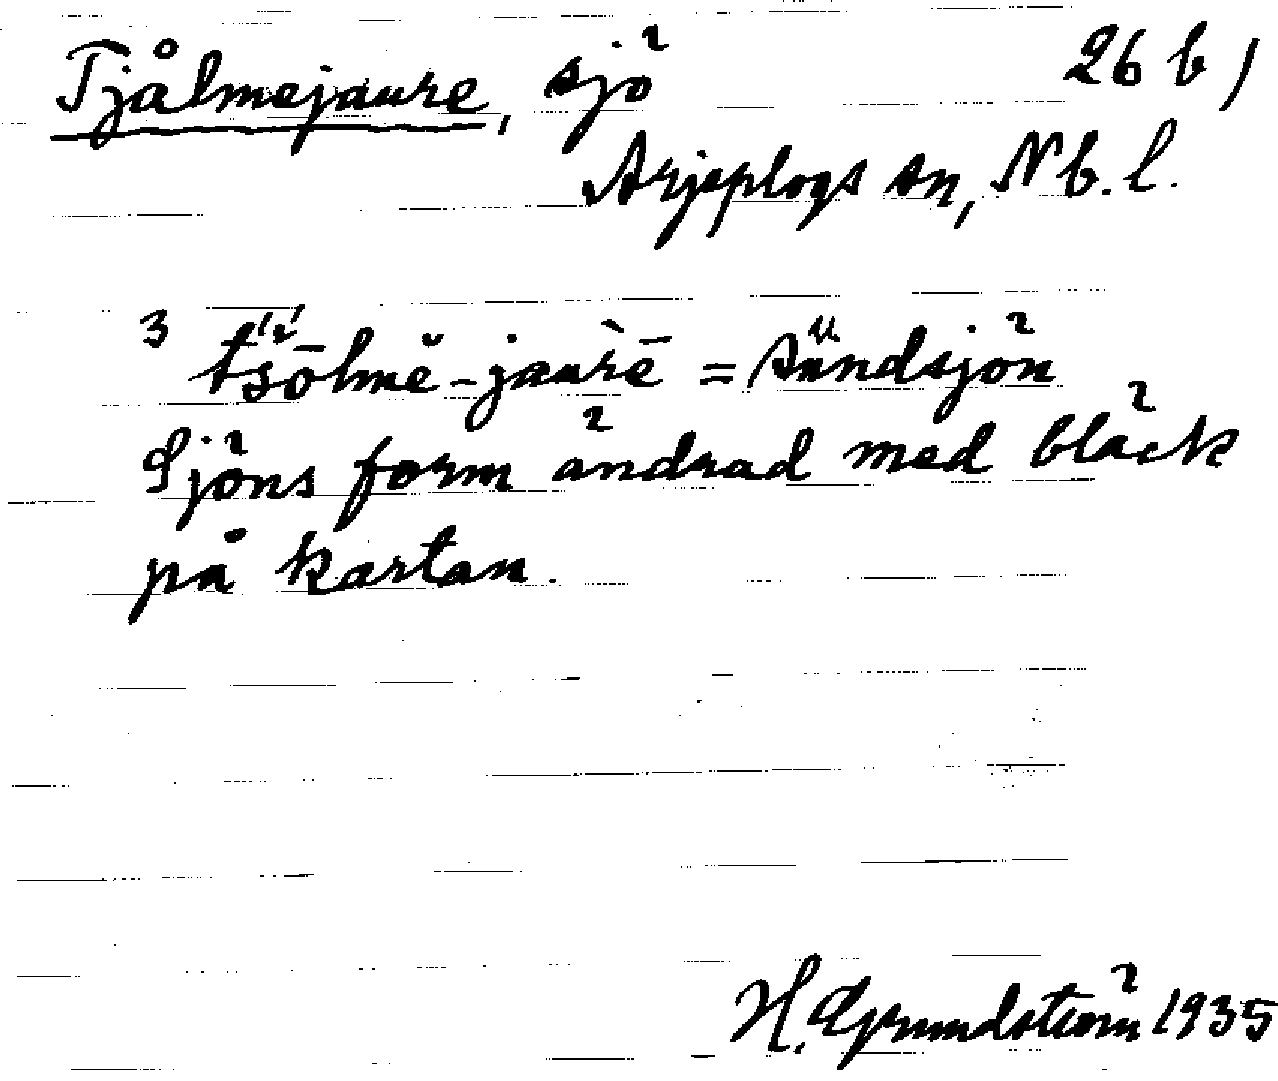 Tjålmejaure, sjö 26 b)
Arjeplogs sn, Nb. l.
3 tšōlmĕ-jaurē = Sundsjön
Sjöns form ändrad med bläck
på kartan.
H. Grundström 1935